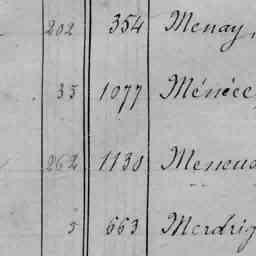 202 354 Menay,
35 1077 Ménéce
262 1130
5 663 Merdrig